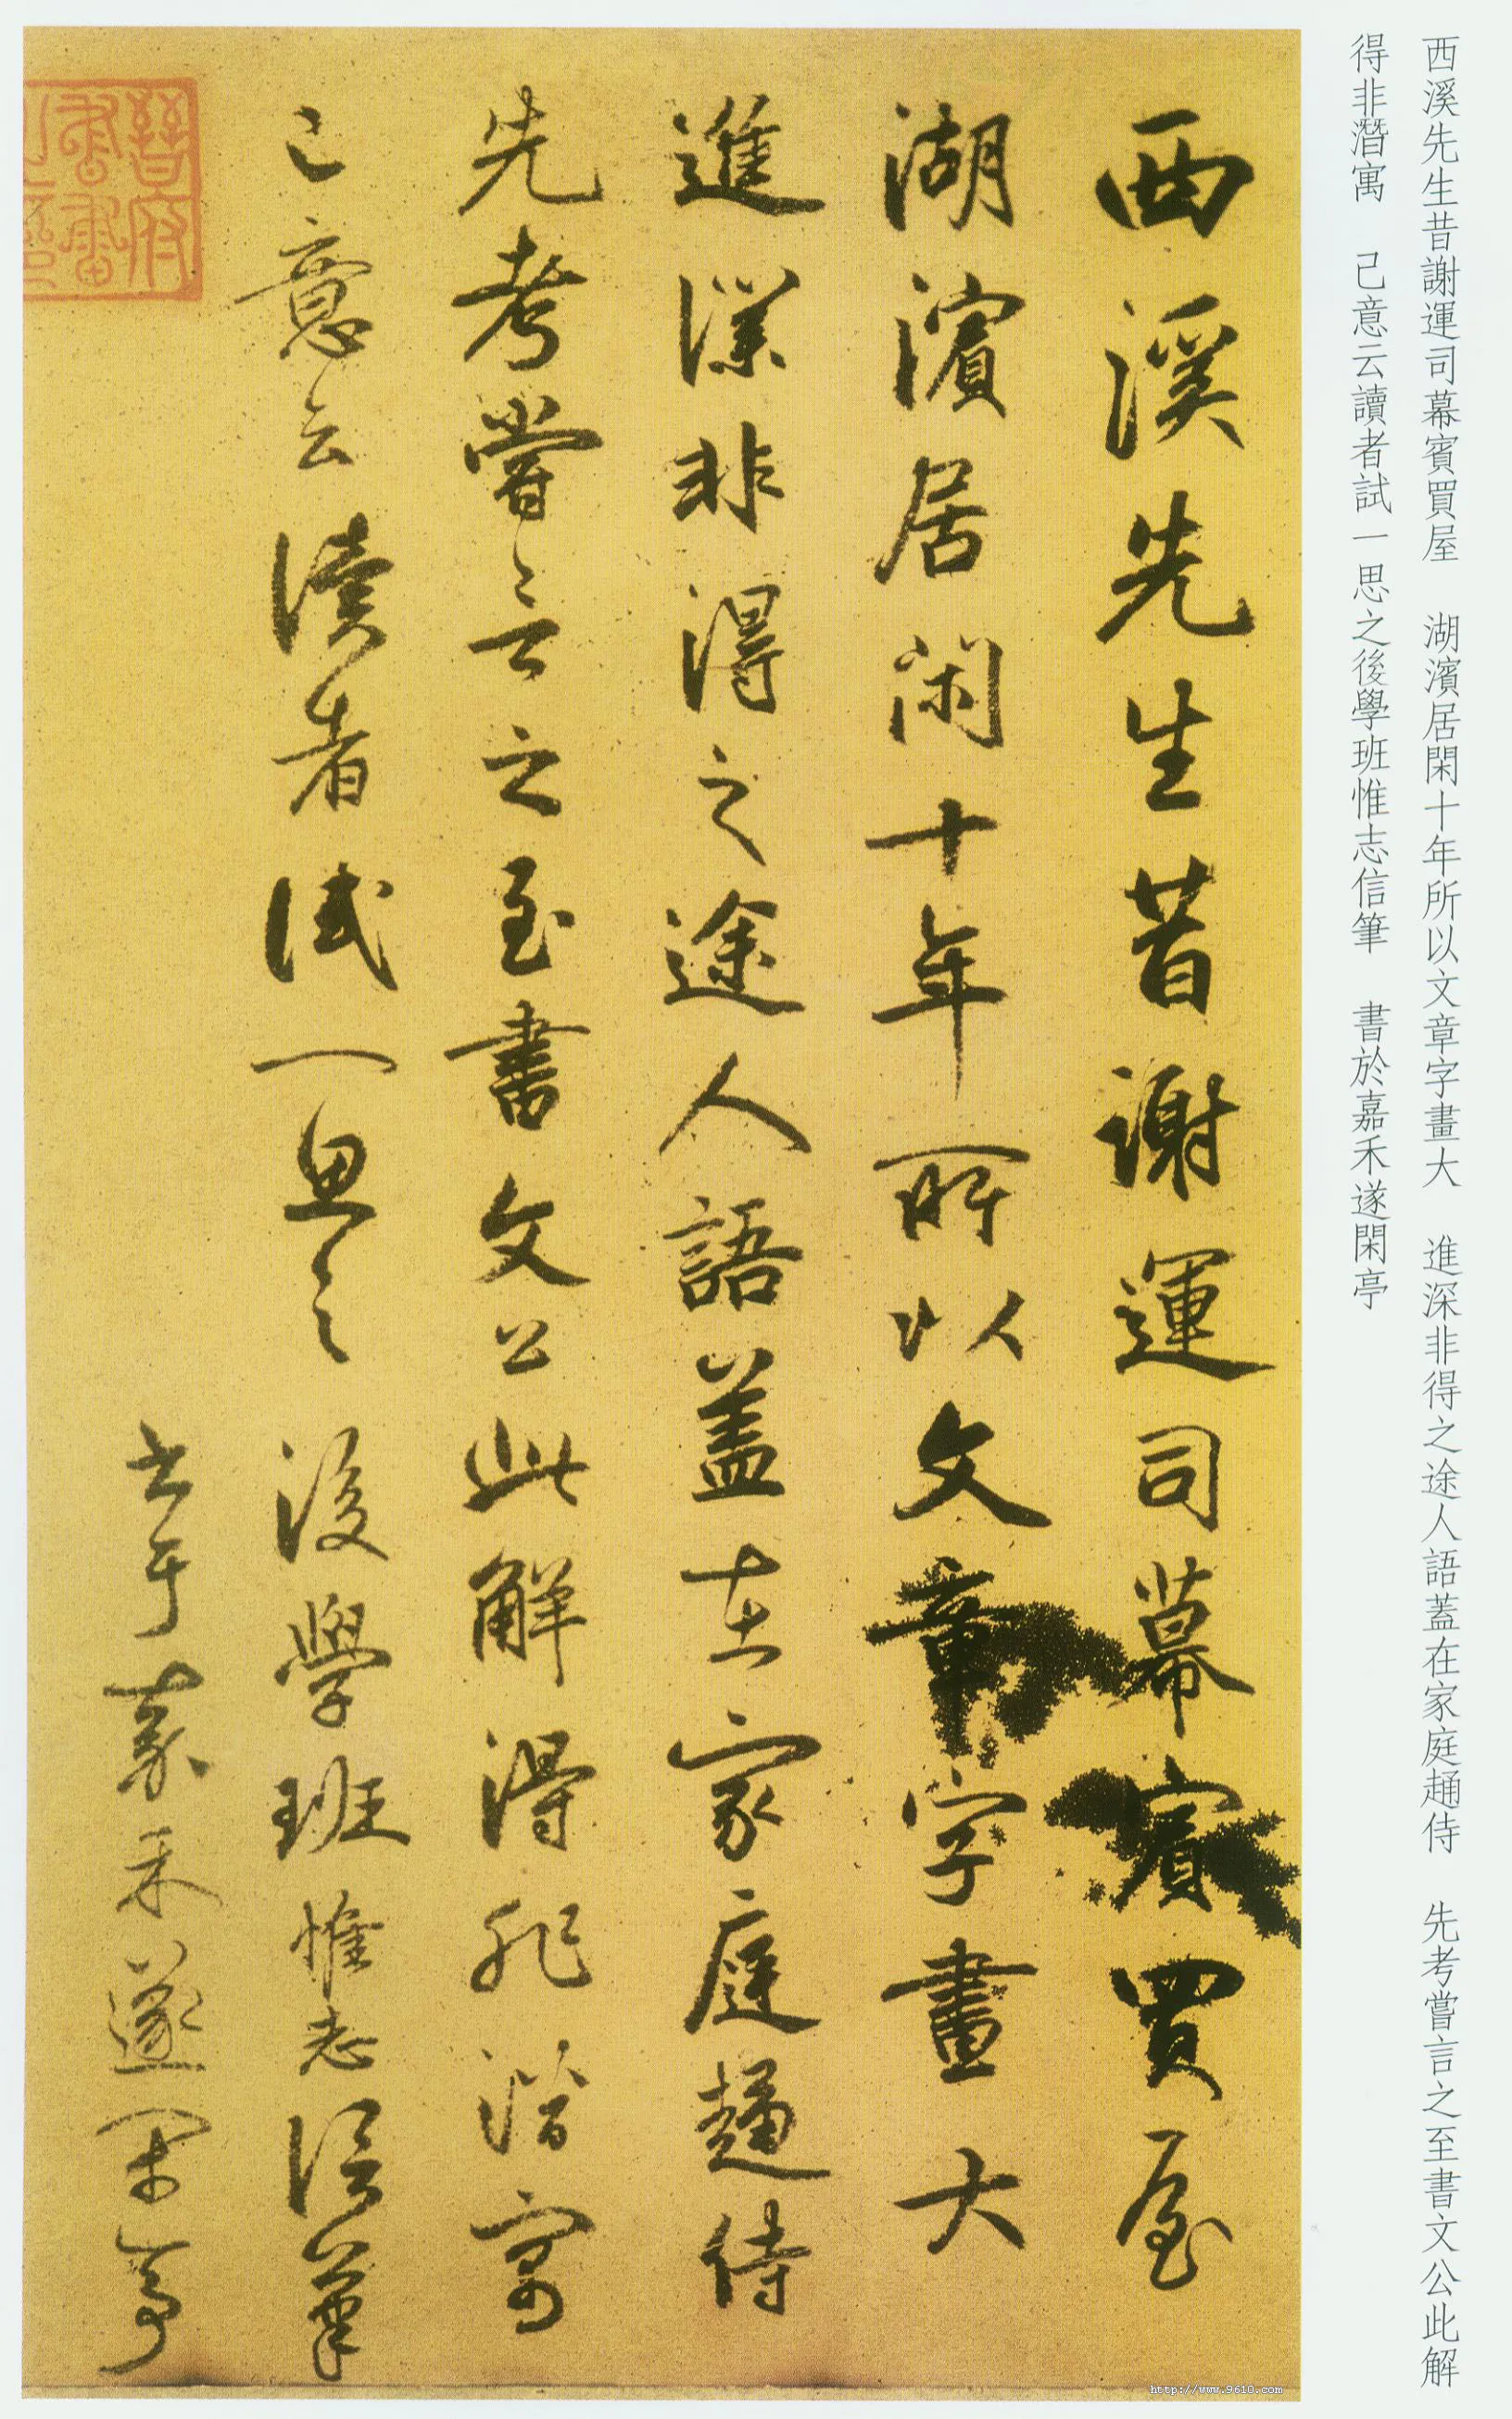 西溪先生昔謝運司幕賓買屋　湖濱居閑十年所以文章字畫大　進深非得之途人語蓋在家庭趨侍　先考嘗言之至書文公此解
得非潛寓　己意云讀者試一思之後學班惟志信筆　書於嘉禾遂閑亭
西溪先生昔謝運司幕賓買屋
湖濱居閑十年所以文章字畫大
進深非得之途人語蓋在家庭趨侍
先考嘗言之至書文公此解得非潛寓
己意云讀者試一思之後學班惟志信筆
書于嘉禾遂閑亭
晉府書畫之印
http://www.9610.com